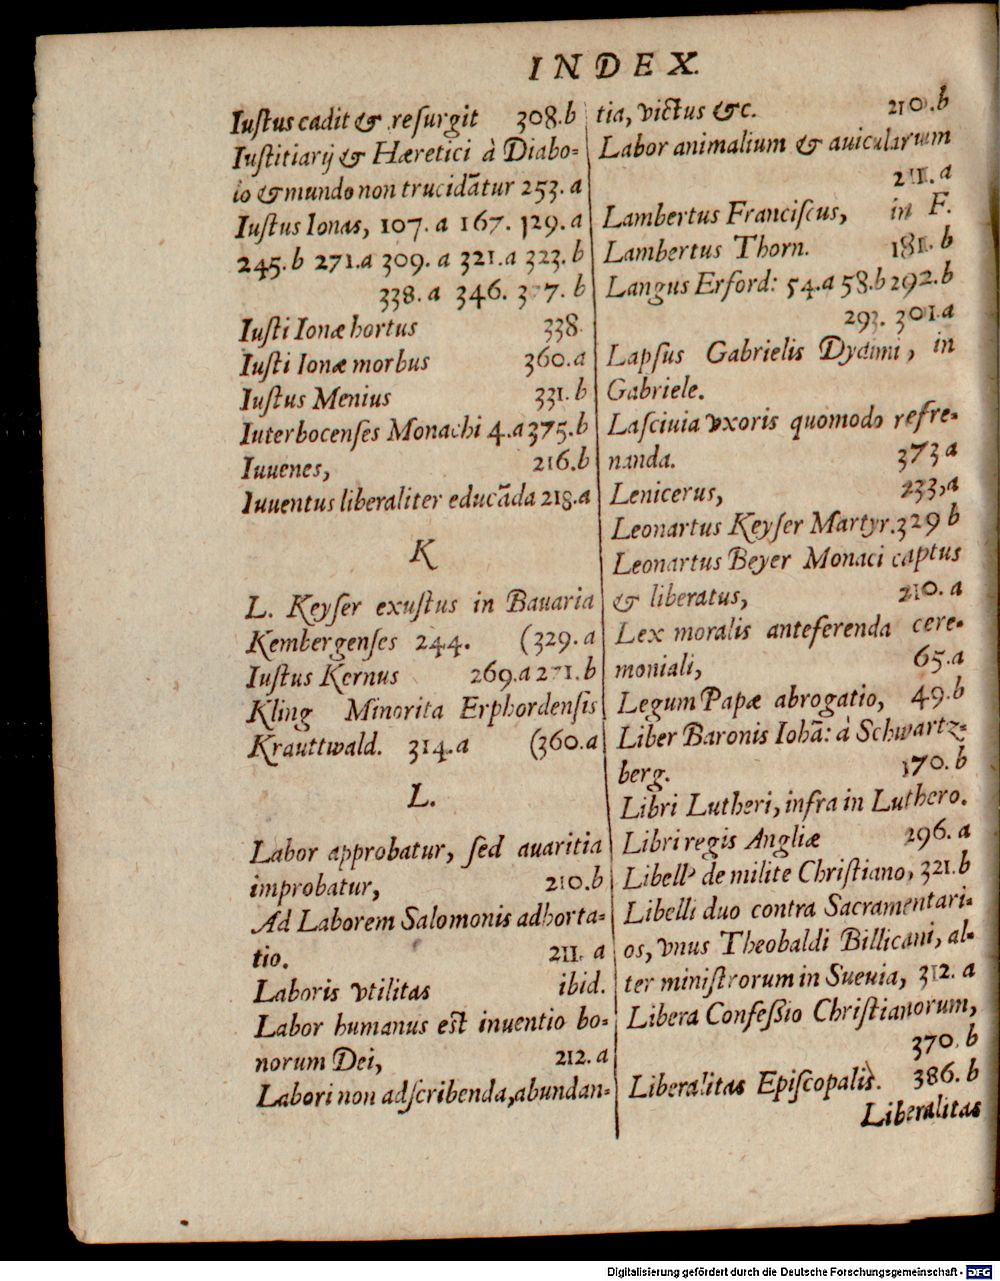 INDEX.
Iuſtus cadit & reſurgit 308.b
Iuſtitiarij & Hæretici à Diabo-
io & mundo non trucidātur 253. a
Iuſtus Ionas, 107. a 167. 129. a
245. b 271.a 309. a 321.a 323. b
338. a 346. 377. b
Iuſti Ionæ hortus 338.
Iuſti Ionæ morbus 360.a
Iuſtus Menius 331. b
Iuterbocenſes Monachi 4.a 375.b
Iuuenes, 216.b
Iuuentus liberaliter educāda 218.a
K
L. Keyſer exuſtus in Bauaria
Kembergenſes 244. (329. a
Iuſtus Kernus 269.a 271.b
Kling Minorita Erphordenſis
Krauttwald. 314.a (360.a
L.
Labor approbatur, ſed auaritia
improbatur, 210.b
Ad Laborem Salomonis adhorta-
tio. 211. a
Laboris vtilitas ibid.
Labor humanus eſt inuentio bo-
norum Dei, 212. a
Labori non adſcribenda, abundan-
tia, victus &c. 210.b
Labor animalium & auicularum
211. a
Lambertus Franciſcus, in F.
Lambertus Thorn. 181. b
Langus Erford: 54.a 58.b 292.b
293. 301.a
Lapſus Gabrielis Dydimi, in
Gabriele.
Laſciuia vxoris quomodo refre-
nanda. 373 a
Lenicerus, 233,a
Leonartus Keyſer Martyr. 329 b
Leonartus Beyer Monaci captus
& liberatus, 210. a
Lex moralis anteferenda cere-
moniali, 65.a
Legum Papæ abrogatio, 49.b
Liber Baronis Iohā: à Schwartz-
berg. 170. b
Libri Lutheri, infra in Luthero.
Libri regis Angliæ 296. a
Libell' de milite Chriſtiano, 321.b
Libelli duo contra Sacramentari-
os, vnus Theobaldi Billicani, al-
ter miniſtrorum in Sueuia, 312. a
Libera Confeſsio Chriſtianorum,
370. b
Liberalitas Epiſcopalis. 386. b
Liberalitas
Digitalisierung gefördert durch die Deutsche Forschungsgemeinschaft - DFG